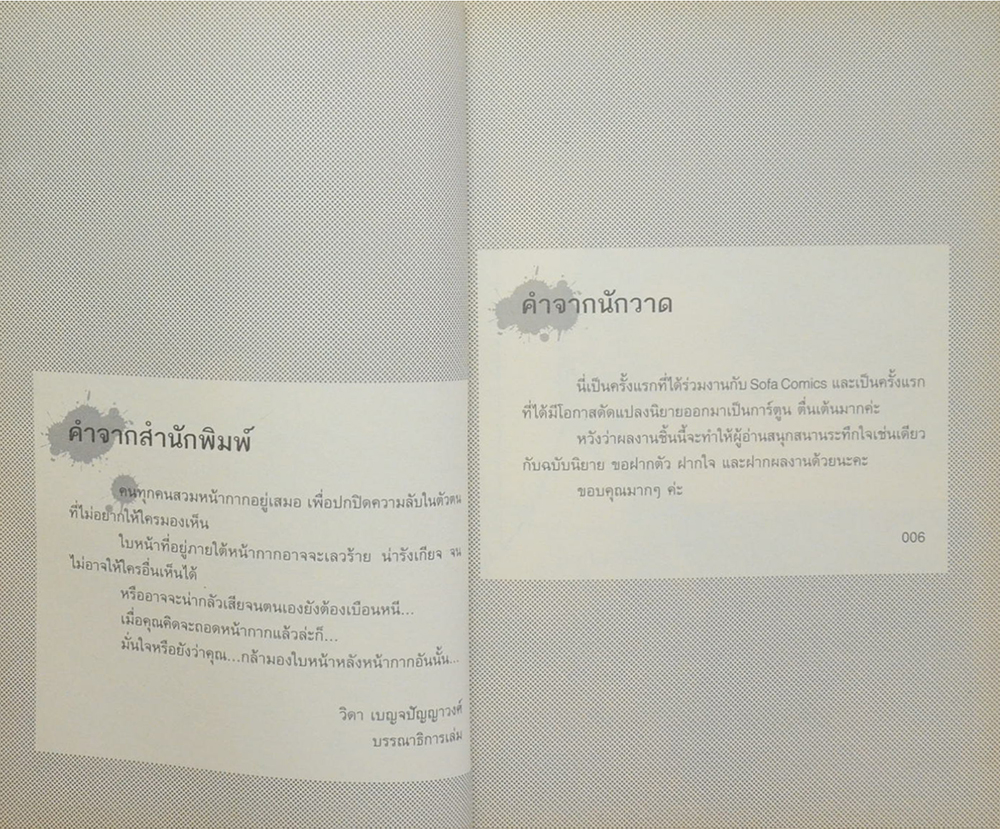 คำจากสำนักพิมพ์
คนทุกคนสวมหน้ากากอยู่เสมอ เพื่อปกปิดความลับในตัวตน
ที่ไม่อยากให้ใครมองเห็น
ใบหน้าที่อยู่ภายใต้หน้ากากอาจจะเลวร้าย น่ารังเกียจ จน
ไม่อาจให้ใครอื่นเห็นได้
หรืออาจจะน่ากลัวเสียจนตนเองยังต้องเบือนหนี...
เมื่อคุณคิดจะถอดหน้ากากแล้วล่ะก็...
มั่นใจหรือยังว่าคุณ...กล้ามองใบหน้าหลังหน้ากากอันนั้น...
วิดา เบญจปัญญาวงศ์
บรรณาธิการเล่ม
คำจากนักวาด
นี่เป็นครั้งแรกที่ได้ร่วมงานกับ Sofa Comics และเป็นครั้งแรก
ที่ได้มีโอกาสดัดแปลงนิยายออกมาเป็นการ์ตูน ตื่นเต้นมากค่ะ
หวังว่าผลงานชิ้นนี้จะทำให้ผู้อ่านสนุกสนานระทึกใจเช่นเดียว
กับฉบับนิยาย ขอฝากตัว ฝากใจ และฝากผลงานด้วยนะคะ
ขอบคุณมากๆ ค่ะ
006